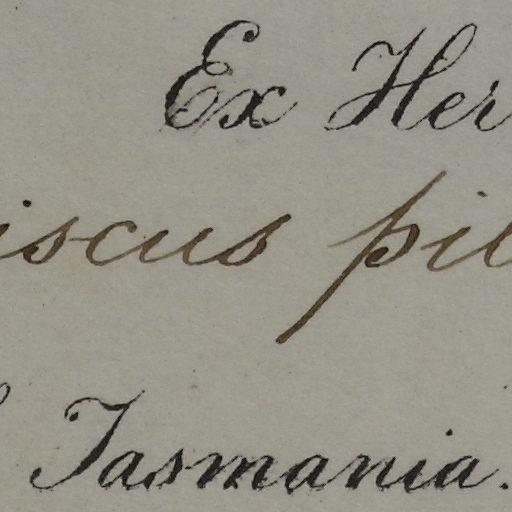 Ex Her
iscus pil
Tasmania.